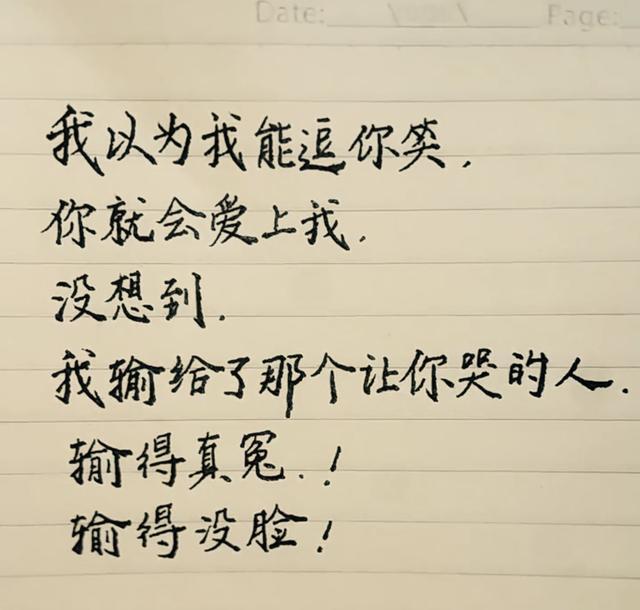 Date: Page:
我以为我能逗你笑.
你就会爱上我.
没想到.
我输给了那个让你哭的人.
输得真冤.！
输得没脸！